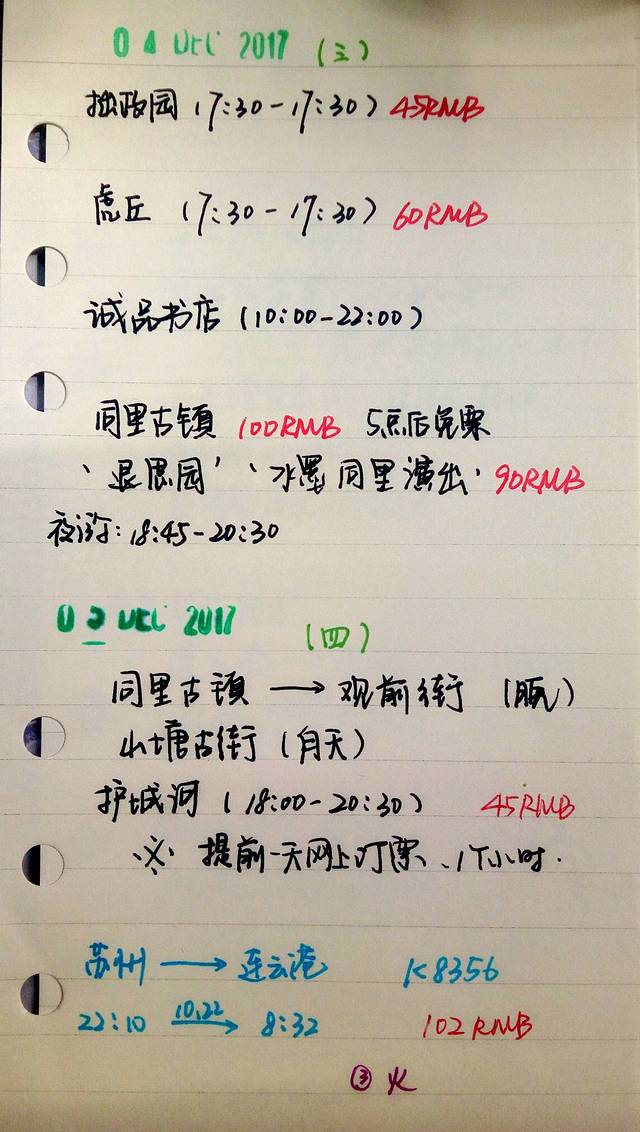 04 DEC 2017 (三)
拙政园 (7:30-17:30) 45RMB
虎丘 (7:30-17:30) 60RMB
诚品书店 (10:00-22:00)
同里古镇 100RMB 5点后免票
、退思园' 、水墨同里演出' 90RMB
夜游: 18:45-20:30
DEC 2017 (四)
同里古镇 → 观前街
山塘古街
护城河 (18:00-20:30) 45RMB
※ 提前一天网上订票、1个小时.
苏州 → 连云港 K8356
22:10 10.22→ 8:32 102RMB
③ 火